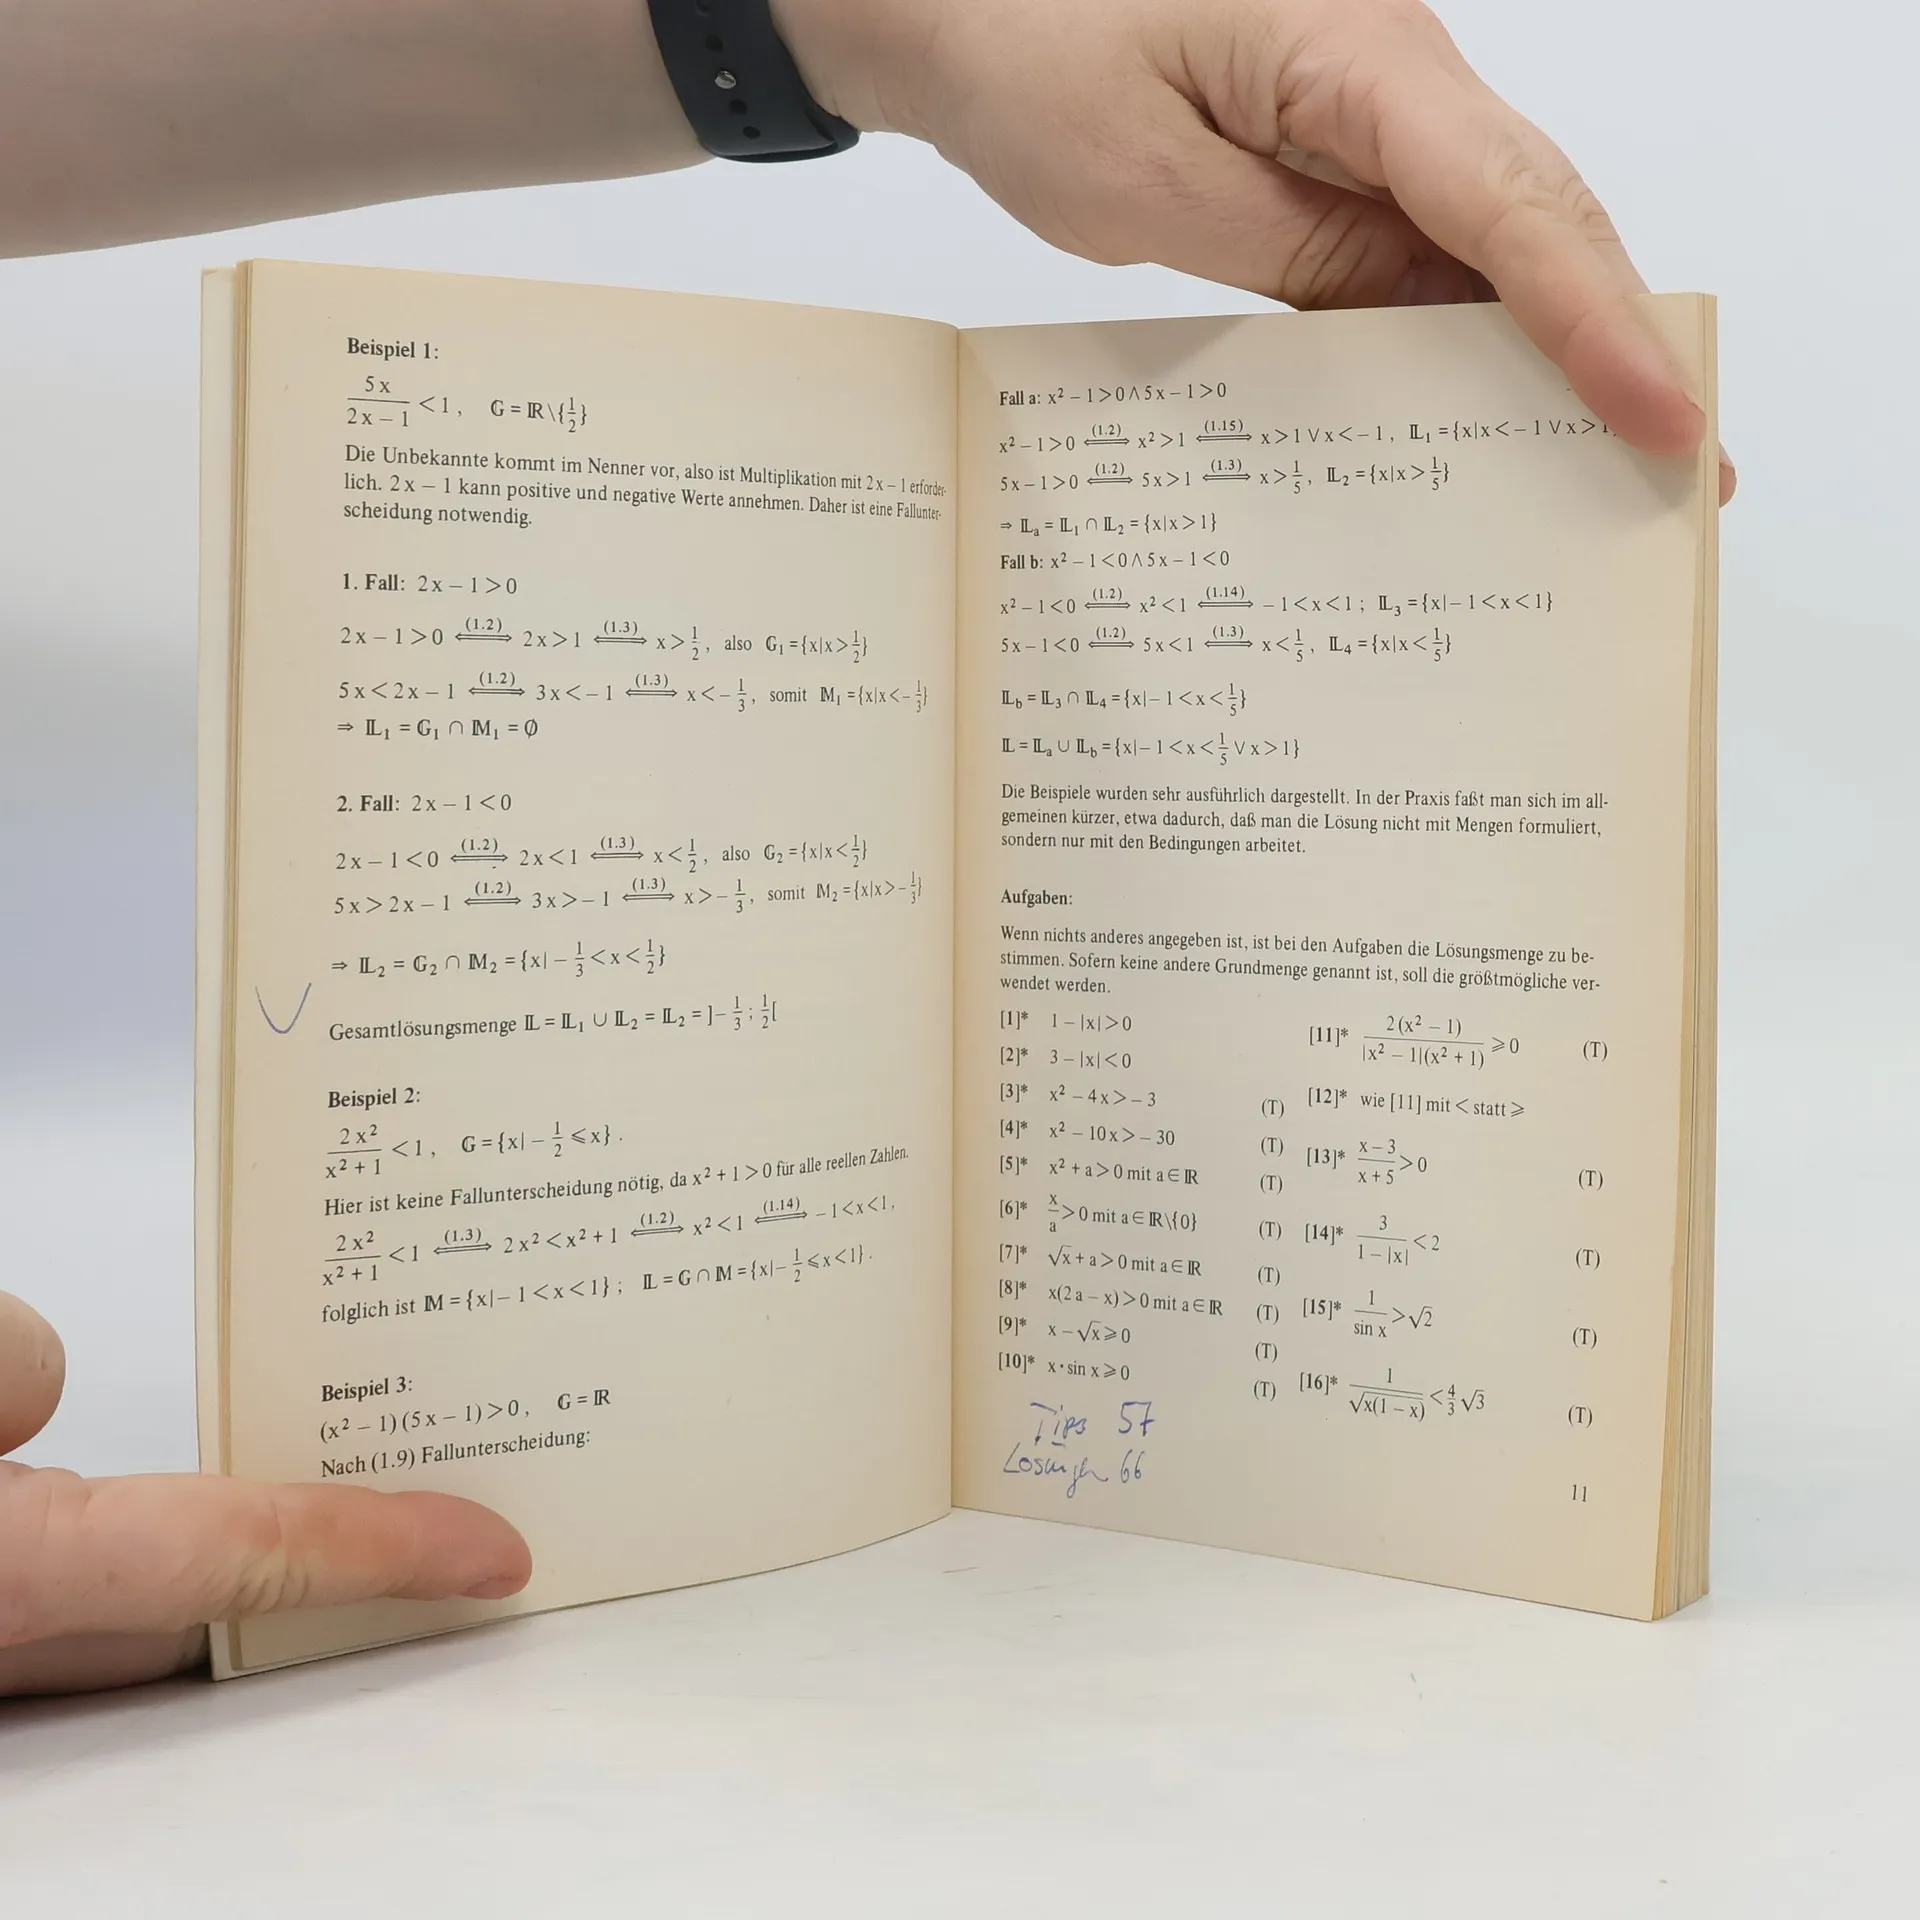 Beispiel 1:
5x/(2x − 1) < 1, G = ℝ\{1/2}
Die Unbekannte kommt im Nenner vor, also ist Multiplikation mit 2x − 1 erforder-
lich. 2x − 1 kann positive und negative Werte annehmen. Daher ist eine Fallunter-
scheidung notwendig.
1. Fall: 2x − 1 > 0
2x − 1 > 0 ⟺(1.2) 2x > 1 ⟺(1.3) x > 1/2, also G₁ = {x|x > 1/2}
5x < 2x − 1 ⟺(1.2) 3x < −1 ⟺(1.3) x < −1/3, somit M₁ = {x|x < −1/3}
⇒ L₁ = G₁ ∩ M₁ = ∅
2. Fall: 2x − 1 < 0
2x − 1 < 0 ⟺(1.2) 2x < 1 ⟺(1.3) x < 1/2, also G₂ = {x|x < 1/2}
5x > 2x − 1 ⟺(1.2) 3x > −1 ⟺(1.3) x > −1/3, somit M₂ = {x|x > −1/3}
⇒ L₂ = G₂ ∩ M₂ = {x| −1/3 < x < 1/2}
Gesamtlösungsmenge L = L₁ ∪ L₂ = L₂ = ]−1/3; 1/2[
Beispiel 2:
2x²/(x² + 1) < 1, G = {x| −1/2 ⩽ x}.
Hier ist keine Fallunterscheidung nötig, da x² + 1 > 0 für alle reellen Zahlen.
2x²/(x² + 1) < 1 ⟺(1.3) 2x² < x² + 1 ⟺(1.2) x² < 1 ⟺(1.14) −1 < x < 1,
folglich ist M = {x| −1 < x < 1}; L = G ∩ M = {x| −1/2 ⩽ x < 1}.
Beispiel 3:
(x² − 1)(5x − 1) > 0, G = ℝ
Nach (1.9) Fallunterscheidung:
Fall a: x² − 1 > 0 ∧ 5x − 1 > 0
x² − 1 > 0 ⟺(1.2) x² > 1 ⟺(1.15) x > 1 ∨ x < −1, L₁ = {x|x < −1 ∨ x >
5x − 1 > 0 ⟺(1.2) 5x > 1 ⟺(1.3) x > 1/5, L₂ = {x|x > 1/5}
⇒ Lₐ = L₁ ∩ L₂ = {x|x > 1}
Fall b: x² − 1 < 0 ∧ 5x − 1 < 0
x² − 1 < 0 ⟺(1.2) x² < 1 ⟺(1.14) −1 < x < 1; L₃ = {x| −1 < x < 1}
5x − 1 < 0 ⟺(1.2) 5x < 1 ⟺(1.3) x < 1/5, L₄ = {x|x < 1/5}
L_b = L₃ ∩ L₄ = {x| −1 < x < 1/5}
L = Lₐ ∪ L_b = {x| −1 < x < 1/5 ∨ x > 1}
Die Beispiele wurden sehr ausführlich dargestellt. In der Praxis faßt man sich im all-
gemeinen kürzer, etwa dadurch, daß man die Lösung nicht mit Mengen formuliert,
sondern nur mit den Bedingungen arbeitet.
Aufgaben:
Wenn nichts anderes angegeben ist, ist bei den Aufgaben die Lösungsmenge zu be-
stimmen. Sofern keine andere Grundmenge genannt ist, soll die größtmögliche ver-
wendet werden.
[1]* 1 − |x| > 0
[2]* 3 − |x| < 0
[3]* x² − 4x > −3 (T)
[4]* x² − 10x > −30 (T)
[5]* x² + a > 0 mit a ∈ ℝ (T)
[6]* x/a > 0 mit a ∈ ℝ\{0} (T)
[7]* √x + a > 0 mit a ∈ ℝ (T)
[8]* x(2a − x) > 0 mit a ∈ ℝ (T)
[9]* x − √x ⩾ 0 (T)
[10]* x · sin x ⩾ 0 (T)
[11]* 2(x² − 1)/(|x² − 1|(x² + 1)) ⩾ 0 (T)
[12]* wie [11] mit < statt ⩾
[13]* (x − 3)/(x + 5) > 0 (T)
[14]* 3/(1 − |x|) < 2 (T)
[15]* 1/sin x > √2 (T)
[16]* 1/√(x(1 − x)) < 4/3 √3 (T)
Tips 57
Lösungen 66
11